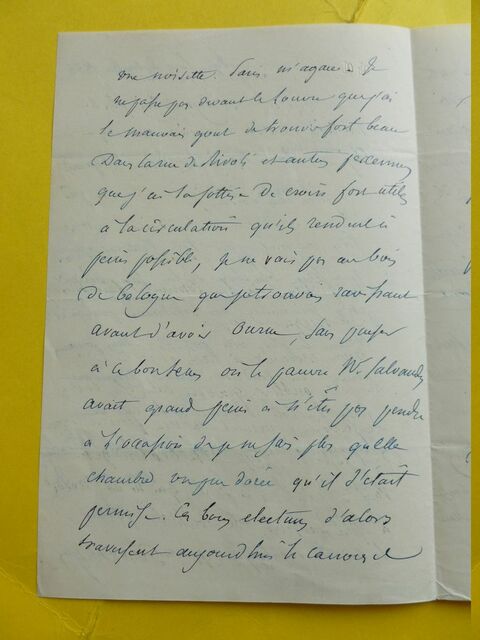 une noisette. Paris m'agace. Je
ne passe pas devant le Louvre que j'ai
le mauvais gout de trouver fort beau
dans la rue de Rivoli et autres
que j'ai la sottise de croire fort utiles
à la circulation qu'ils rendent à
peine possible, je ne vais pas au bois
de bologne que je trouvais ravissant
avant d'avoir sans penser
à ce bon tems où le pauvre Mr Salvandy
avait grand peine à n'être pas pendu
à l'occasion de je ne sais plus quelle
chambre un peu dorée qu'il s'était
permise. Ces bons electeurs d'alors
traversent aujourd'hui le carrousel